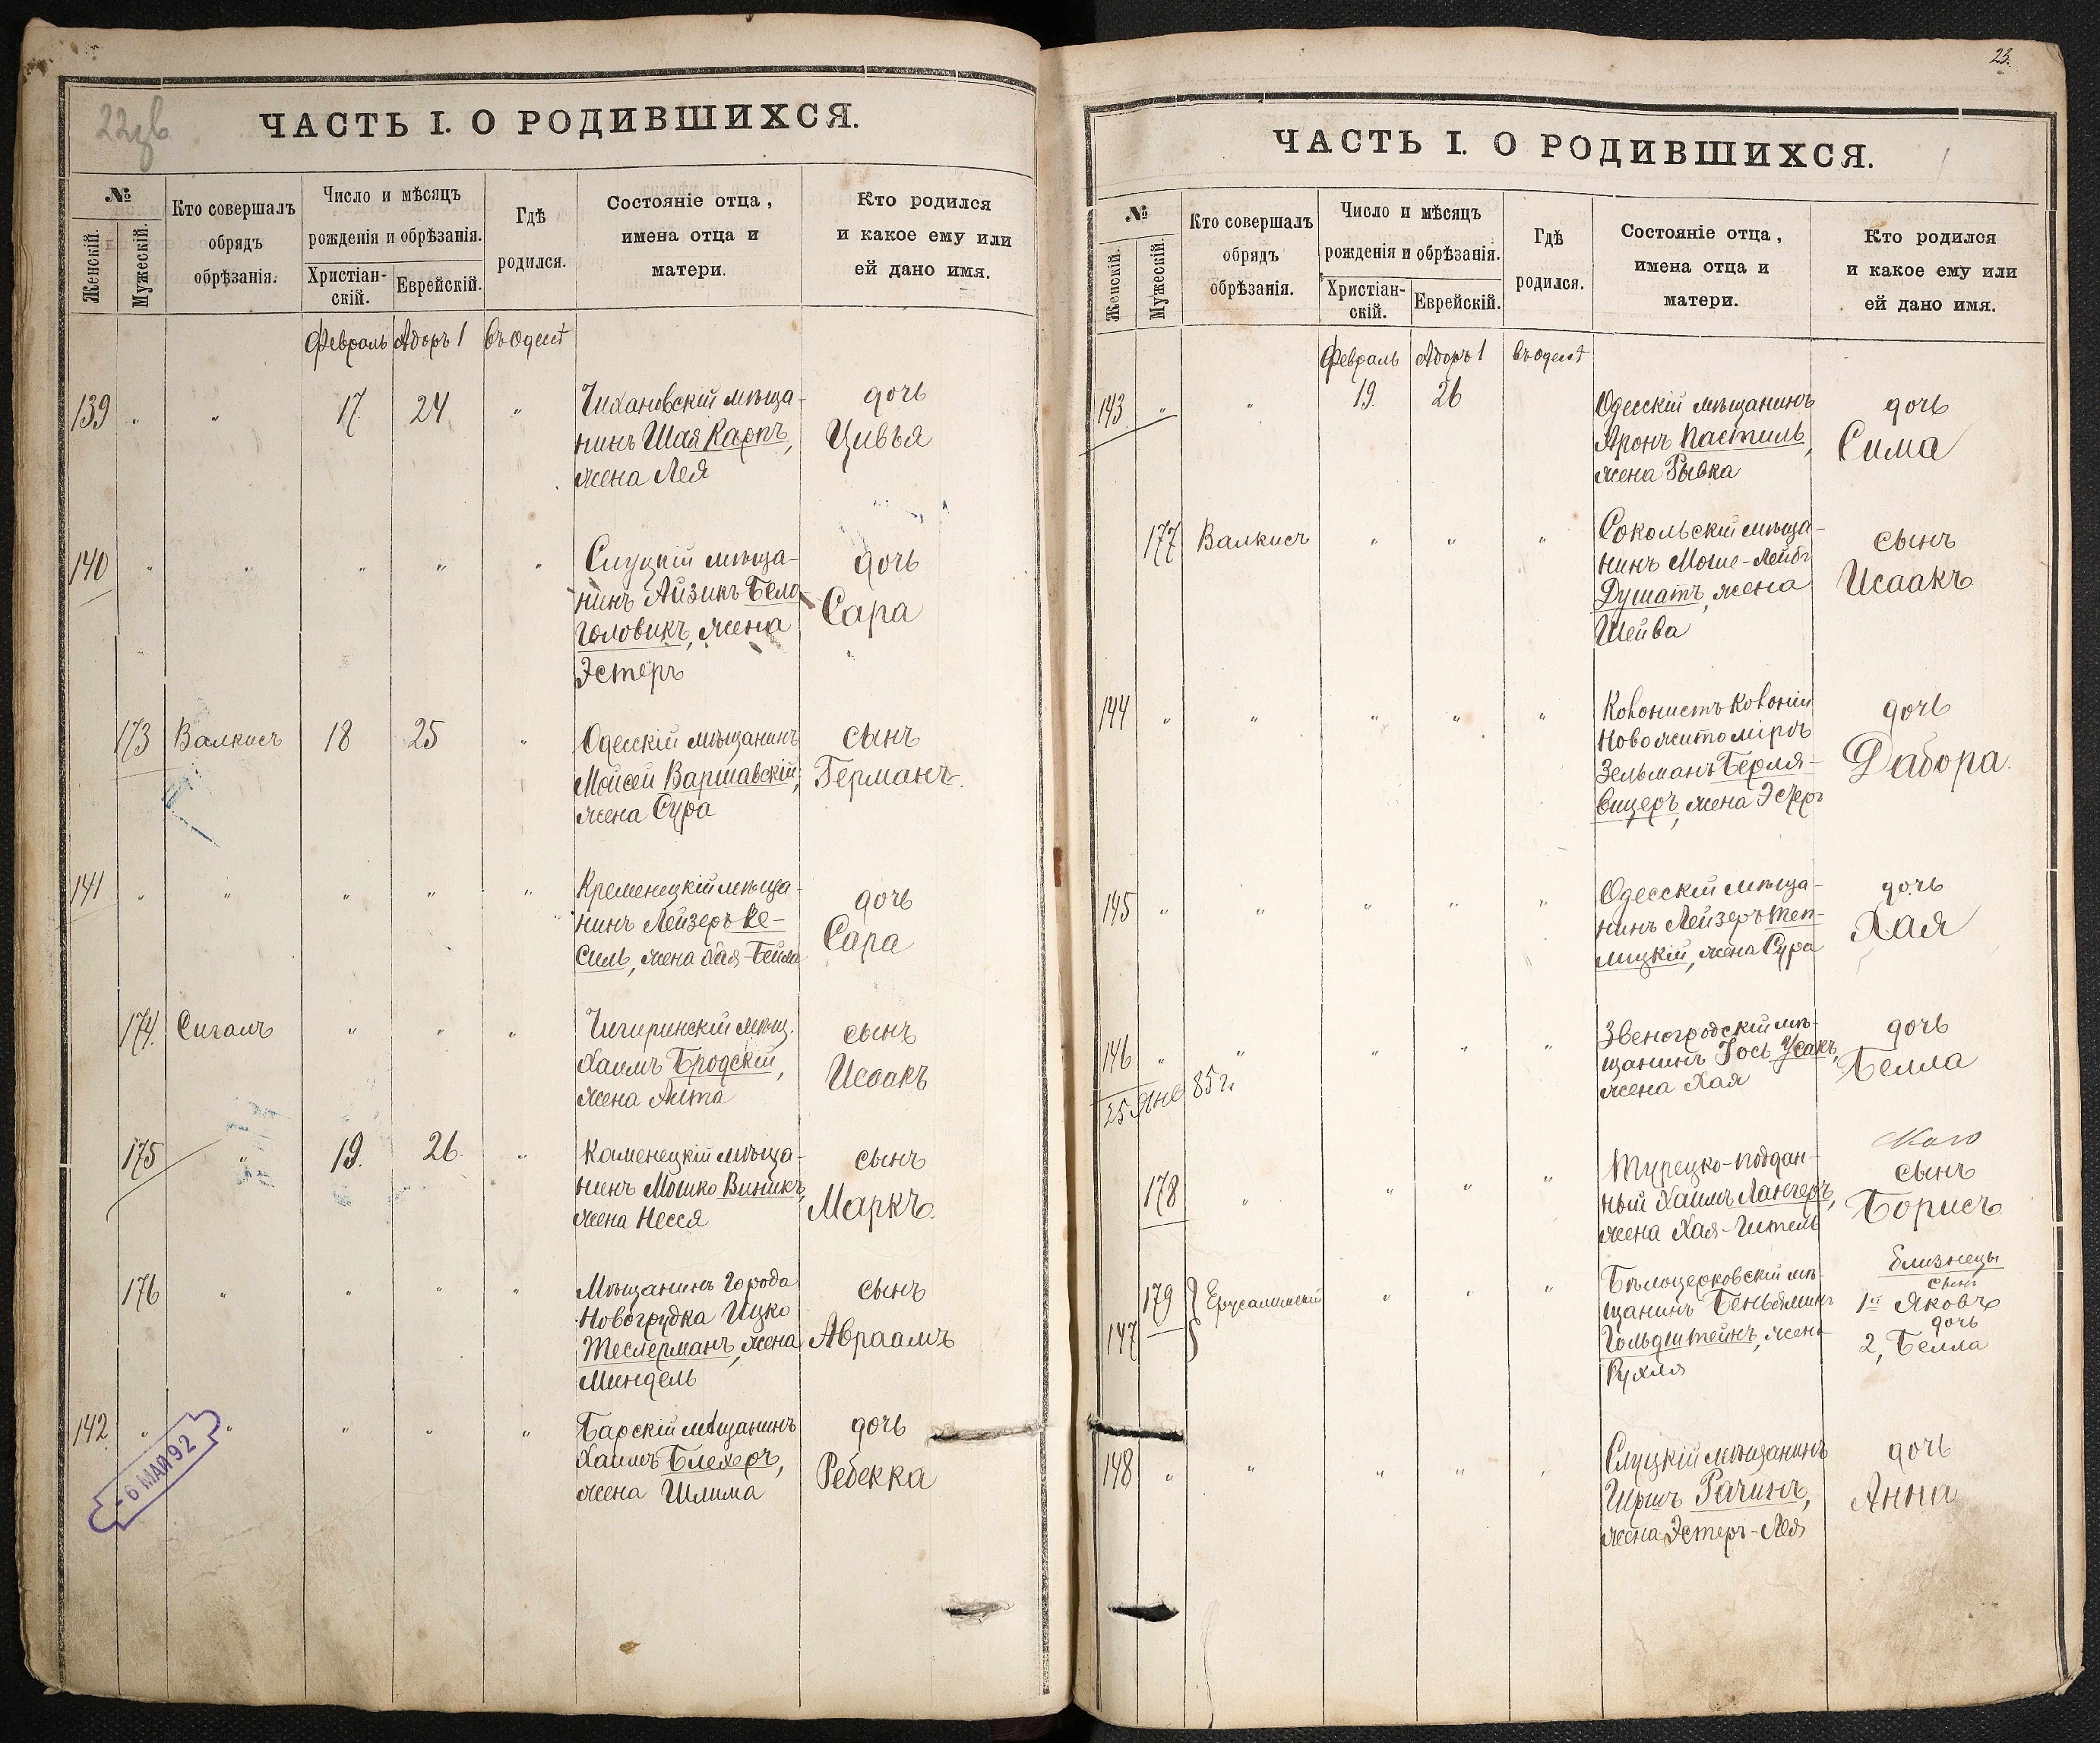 22 об
ЧАСТЬ I. О РОДИВШИХСЯ.
№
Женскій.
Мужескій.
Кто совершалъ
обрядъ
обрѣзанія.
Число и мѣсяцъ
рожденія и обрѣзанія.
Христіан-
скій.
Еврейскій.
Гдѣ
родился.
Состояніе отца,
имена отца и
матери.
Кто родился
и какое ему или
ей дано имя.
Февраль Адоръ 1 въ Одессѣ
139 " " 17. 24 " Тихановскій мѣща- дочь
нинъ Шая Карпъ, Цивья
жена Лея
140 " " " " " Слуцкій мѣща- дочь
нинъ Айзикъ Бело
головикъ, жена Сара
Эстеръ
173 Валкисъ 18 25 " Одесскій мѣщанинъ сынъ
Мойсей Варшавскій, Германъ.
жена Сура
141 " " " " " Кременецкій мѣща- дочь
нинъ Лейзеръ Ве-
силь, жена Хая-Бейла Сара
174. Сигалъ " " " Чигиринскій мѣщ. сынъ
Хаимъ Бродскій, Исаакъ
жена Алта
175 " 19. 26. " Каменецкій мѣща- сынъ
нинъ Мошко Виникъ, Маркъ.
жена Несся
176 " " " " Мѣщанинъ города сынъ
Новогрудка Ицко
Теслерманъ, жена Авраамъ
Миндель
142. " " " " " Барскій мѣщанинъ дочь
Хаимъ Блехеръ, Ребекка
жена Шлима
- 6 МАЙ 92
23.
ЧАСТЬ I. О РОДИВШИХСЯ.
№
Женскій.
Мужескій.
Кто совершалъ
обрядъ
обрѣзанія.
Число и мѣсяцъ
рожденія и обрѣзанія.
Христіан-
скій.
Еврейскій.
Гдѣ
родился.
Состояніе отца,
имена отца и
матери.
Кто родился
и какое ему или
ей дано имя.
Февраль Адоръ 1 въ Одессѣ
143 " " 19. 26 Одесскій мѣщанинъ дочь
Аронъ Пастиль, Сима
жена Рывка
177 Валкисъ " " " Сокольскій мѣща- сынъ
нинъ Моше-Лейбъ Исаакъ
Душатъ, жена
Шейва
144 " " " " " Колонистъ колоніи дочь
Новожитоміръ
Зельманъ Берля- Дабора.
вицеръ, жена Эстеръ
145 " " " " " Одесскій мѣща- дочь
нинъ Лейзеръ Теп- Хая
лицкій, жена Сура
146 " " " " " Звеногродскій мѣ- дочь
щанинъ Іось Усакъ, Белла
жена Хая
25 Янв 85 г.
178 " " " " Турецко-поддан- сынъ
ный Хаимъ Лангеръ, Борисъ
жена Хая-Гитель
близнецы
179 Ерусалимскій " " " Бѣлоцерковскій мѣ- сынъ
щанинъ Беньяминъ 1й Яковъ
147 Гольдштейнъ, жена дочь
Рухля 2, Белла
148 " " " " " Слуцкій мѣщанинъ дочь
Гиршъ Рачинъ, Анна
жена Эстеръ-Лея